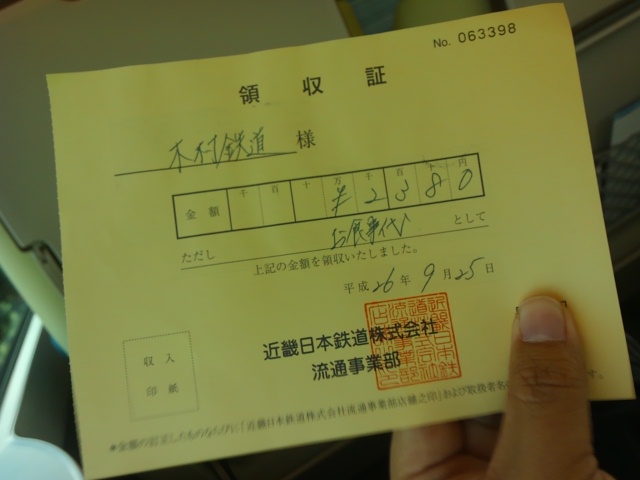 No. 063398
領収証
木村鉄道 様
金額 千 百 十 万 千 百 十 円
¥2380
ただし お食事代 として
上記の金額を領収いたしました。
平成26年9月25日
近畿日本鉄道株式会社
流通事業部
収入
印紙
*金額の訂正したものならびに「近畿日本鉄道株式会社流通事業部店舗之印」および取扱者名